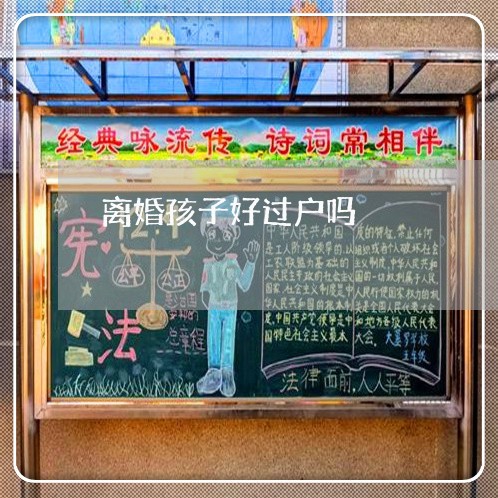 经典咏流传 诗词常相伴
离婚孩子好过户吗
宪
法
公平
公正
总章程
中华人民共和国
是工人阶级领导的,以
工农联盟为基础的
人民民主专政的社会主义
国家,社会主义制度是中
华人民共和国的根本制
度,中国共产党领导是中
国特色社会主义最本
质的特征,禁止任何
组织或者个人破坏社会
主义制度,中华人民共和
国的一切权利属于人民,
人民行使国家权力的机
关是全国人民代表大会
和地方各级人民代表
大会。
学校
五年级
法律面前,人人平等